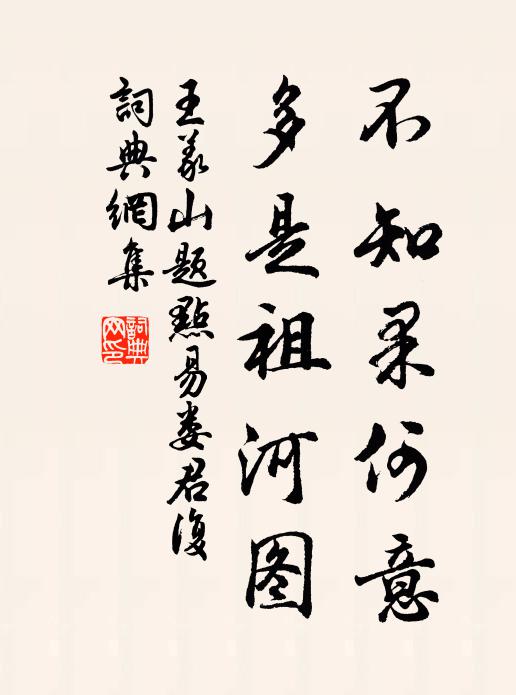 不知果何意
多是祖河图
王义山题點易娄君復
詞典網集
詞典网印